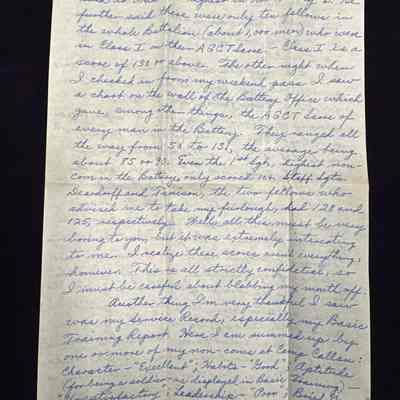 further said there were only ten fellows in
the whole Battalion (about 1,000 men) who were
in Class I in their AGCT Score - Class I is a
score of 130 or above. The other night when
I checked in from my weekend pass I saw
a chart on the wall of the Battery Office which
gave, among other things, the AGCT Score of
every man in the Battery. They ranged all
the way from 56 to 131, the average being
about 85 or 90. Even the 1st Sgt., highest non-
com in the Battery, only scored 104. Staff Sgts.
Deardorff and Tamison, the two fellows who
advised me to take my furlough, had 128 and
125, respectively. Well, all this must be very
boring to you, but it was extremely interesting
to me. I realize these scores aren't everything,
however. This is all strictly confidential, so
I must be careful about blabbing my mouth off.
Another thing I'm very thankful I saw
was my Service Record, especially my Basic
Training Report. Here I am summed up by
one or more of my non-coms at Camp Callan:
Character - "Excellent"; Habits - "Good"; Aptitude
(for being a soldier as displayed in Basic Training) -
Leadership - "Poor";